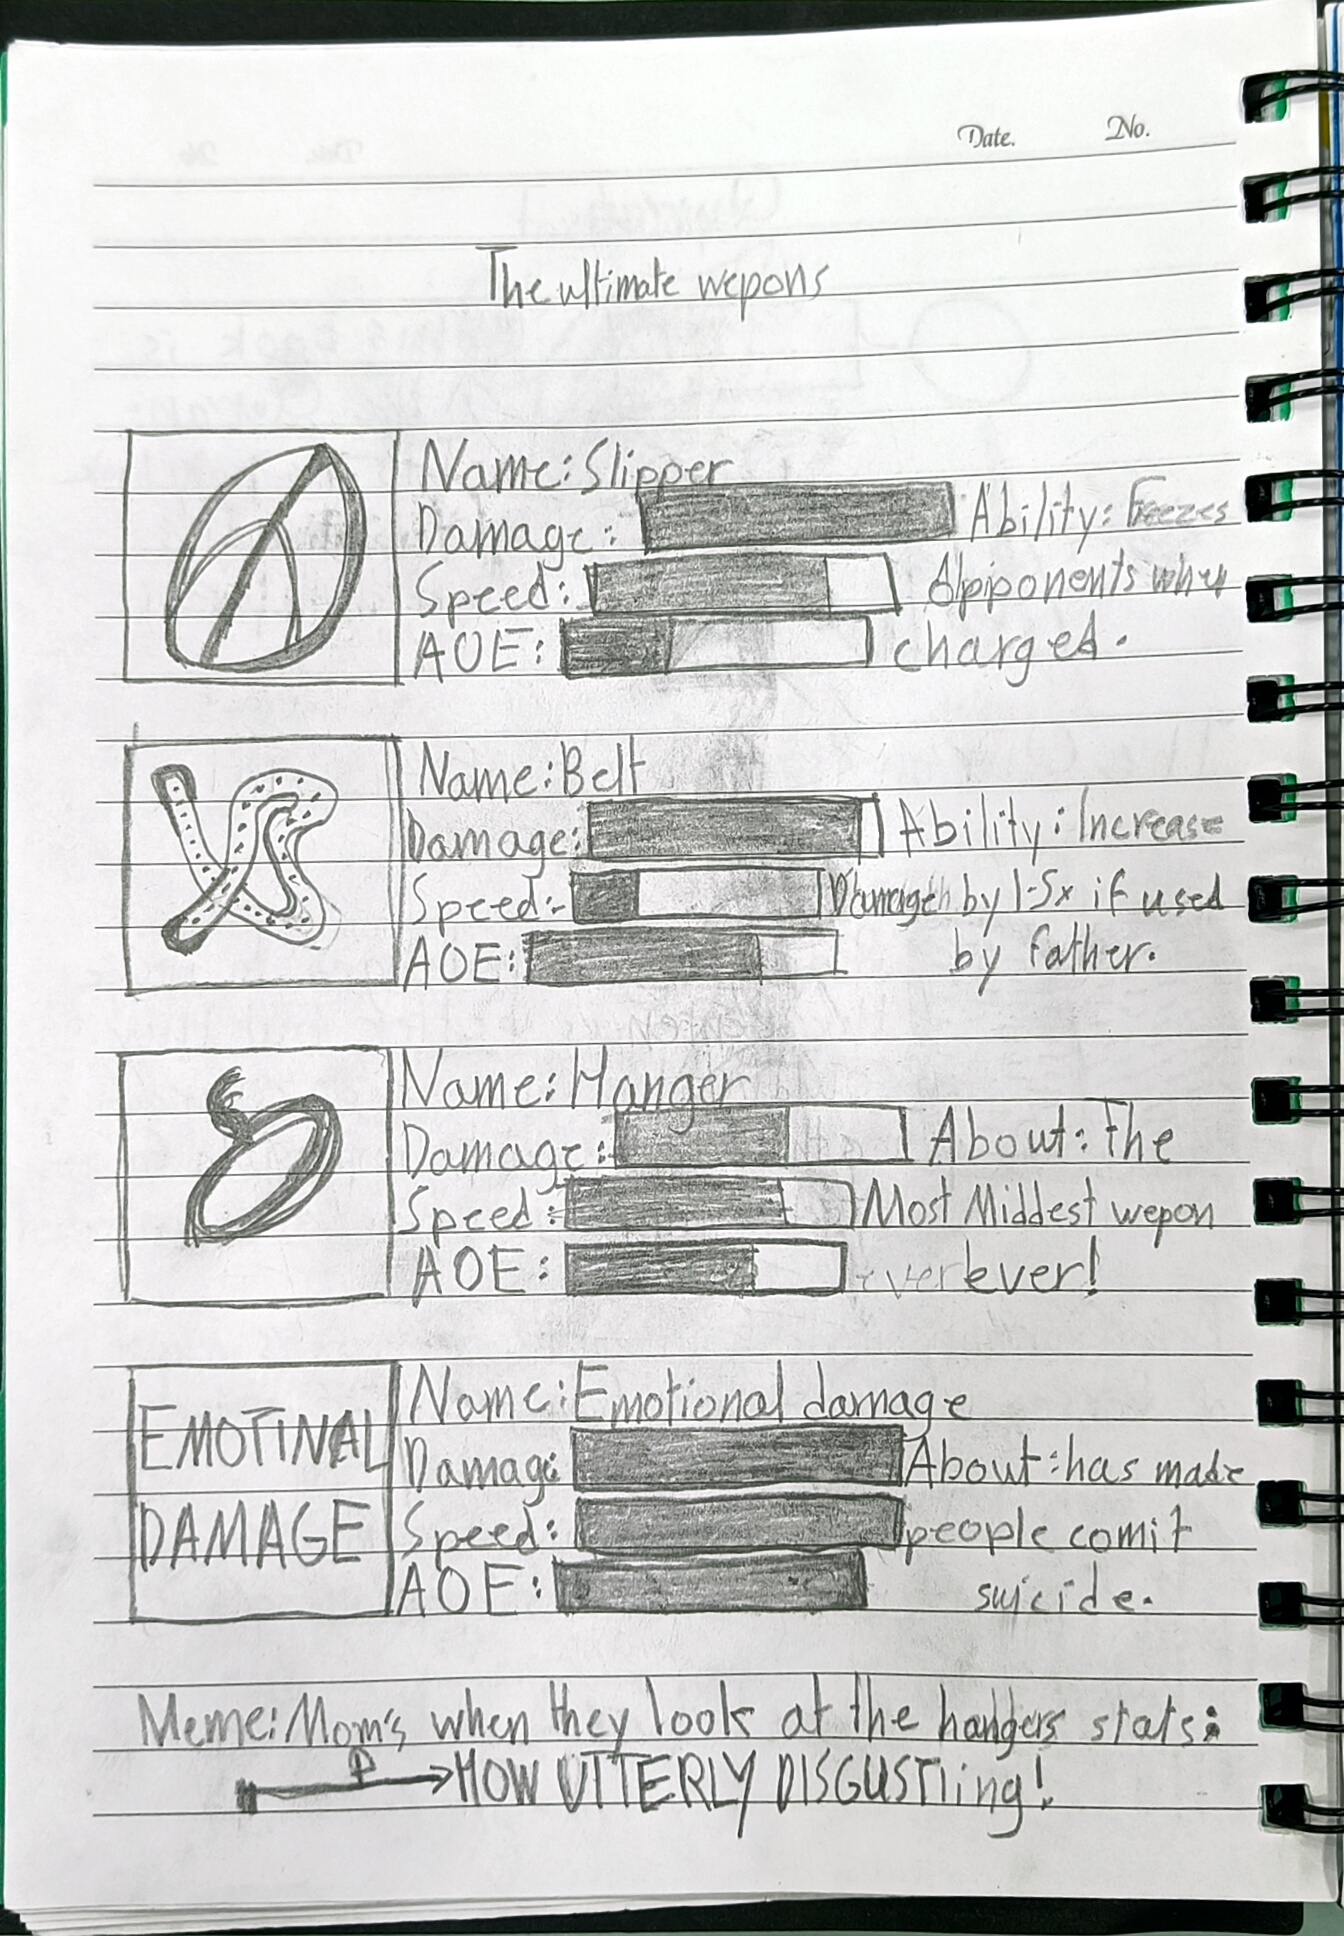 Date. No.
The ultimate wepons
Name: Slipper
Damage: Ability: Freezes
Speed: Opponents when
AOE: charged.
Name: Belt
Damage: Ability: Increase
Speed: Damage by 1.5x if used
AOE: by father.
Name: Hanger
Damage: About: The
Speed: Most Middest wepon
AOE: ever!
EMOTINAL
DAMAGE
Name: Emotional damage
Damage: About: has made
Speed: people comit
AOE: suicide.
Meme: Mom's when they look at the hangers stats:
HOW UTTERLY DISGUSTIing!